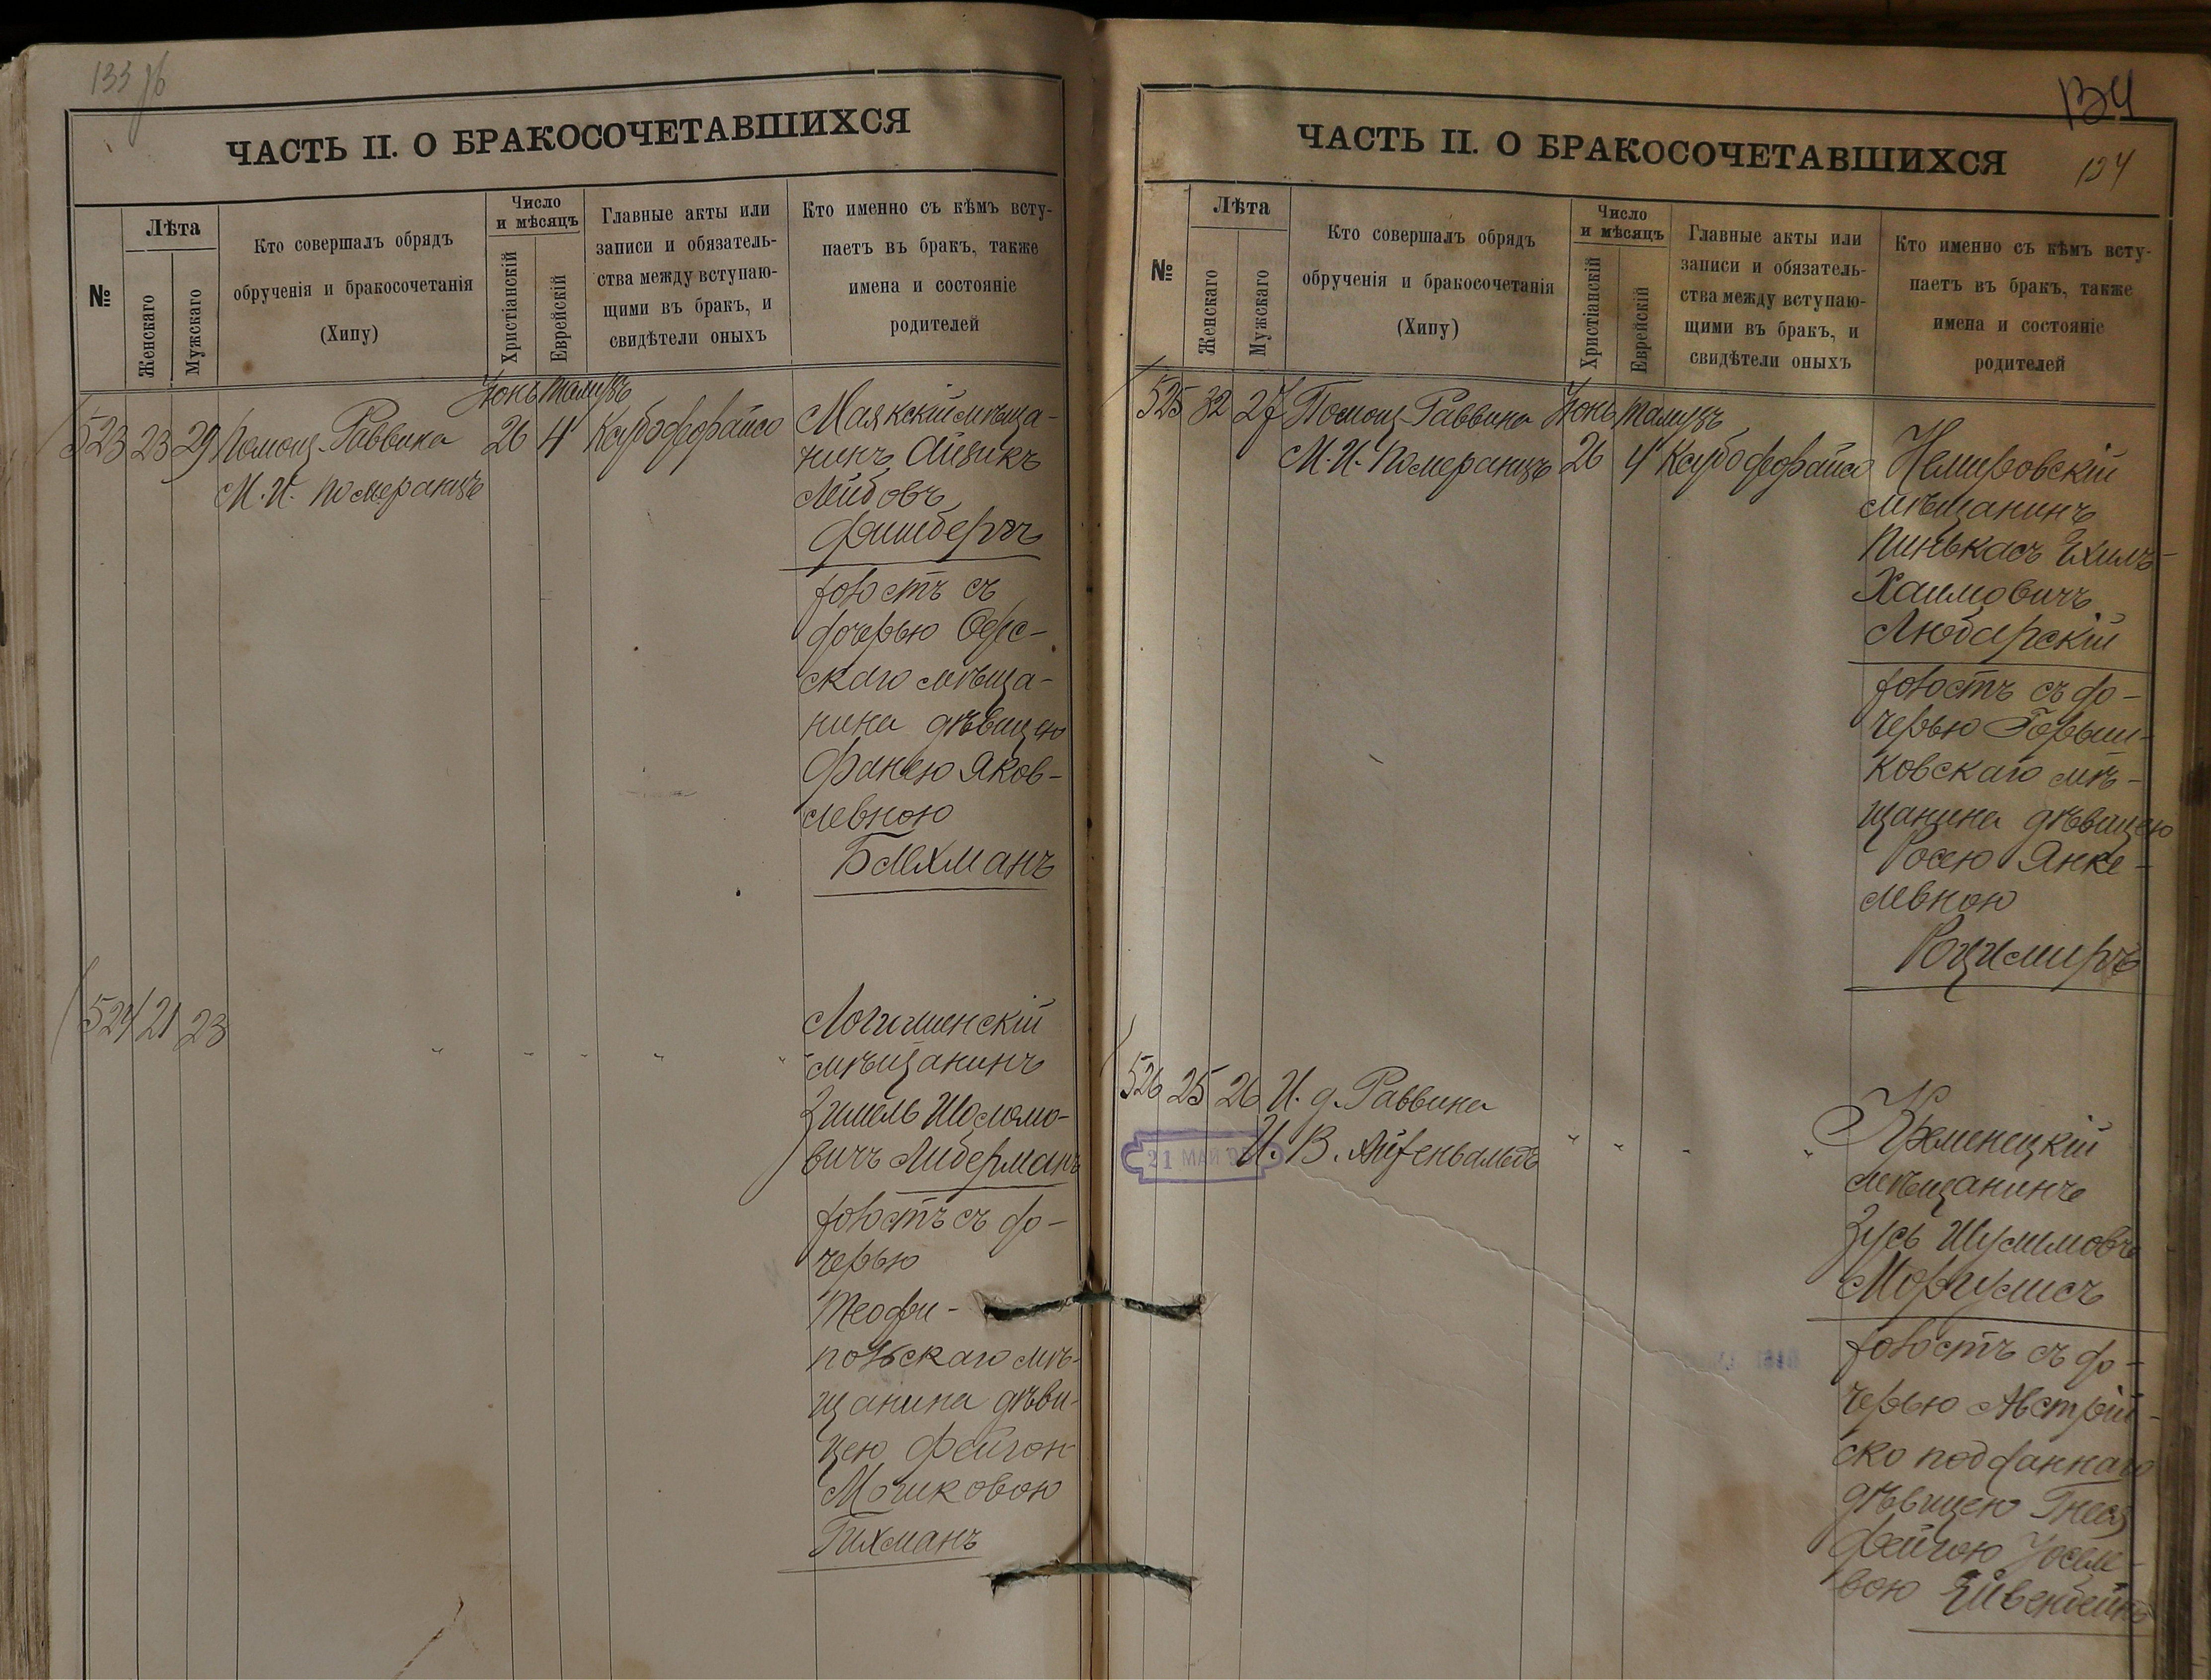 133 об
ЧАСТЬ II. О БРАКОСОЧЕТАВШИХСЯ
№
Лѣта
Женскаго
Мужскаго
Кто совершалъ обрядъ
обрученія и бракосочетанія
(Хипу)
Число
и мѣсяцъ
Христіанскій
Еврейскій
Главные акты или
записи и обязатель-
ства между вступаю-
щими въ бракъ, и
свидѣтели оныхъ
Кто именно съ кѣмъ всту-
паетъ въ бракъ, также
имена и состояніе
родителей
Іюнь Тамузъ
523 23 29 Помощ. Раввина 26 4
М. И. Померанцъ
Маякскій мѣща-
нинъ Айзикъ
Лейбовъ
Фишбергъ
холостъ съ
дочерью Одес-
скаго мѣща-
нина дѣвицею
Фанею Яков-
левною
Блехманъ
524 21 23 " " " " "
Логишинскій
мѣщанинъ
Зимель Шоломо-
вичъ Либерманъ
холостъ съ до-
черью
Теофи-
польскаго мѣ-
щанина дѣви-
цею Фейгою
Мошковою
Гихманъ
134
134
ЧАСТЬ II. О БРАКОСОЧЕТАВШИХСЯ
№
Лѣта
Женскаго
Мужскаго
Кто совершалъ обрядъ
обрученія и бракосочетанія
(Хипу)
Число
и мѣсяцъ
Христіанскій
Еврейскій
Главные акты или
записи и обязатель-
ства между вступаю-
щими въ бракъ, и
свидѣтели оныхъ
Кто именно съ кѣмъ всту-
паетъ въ бракъ, также
имена и состояніе
родителей
525 32 27 Помощ. Раввина Іюнь Тамузъ
М. И. Померанцъ 26 4
Немировскій
мѣщанинъ
Пинькасъ Ехиль-
Хаимовичъ
Любарскій
холостъ съ до-
черью Горыш-
ковскаго мѣ-
щанина дѣвицею
Росею Янке-
левною
526 25 26 И. д. Раввина
И. В. Айзенвальдъ " " " "
21 МАЙ
Кременецкій
мѣщанинъ
Зусь Шулимовъ
Моргулисъ
холостъ съ до-
черью Австрій-
ско подданнаго
дѣвицею
Фейгою
вою